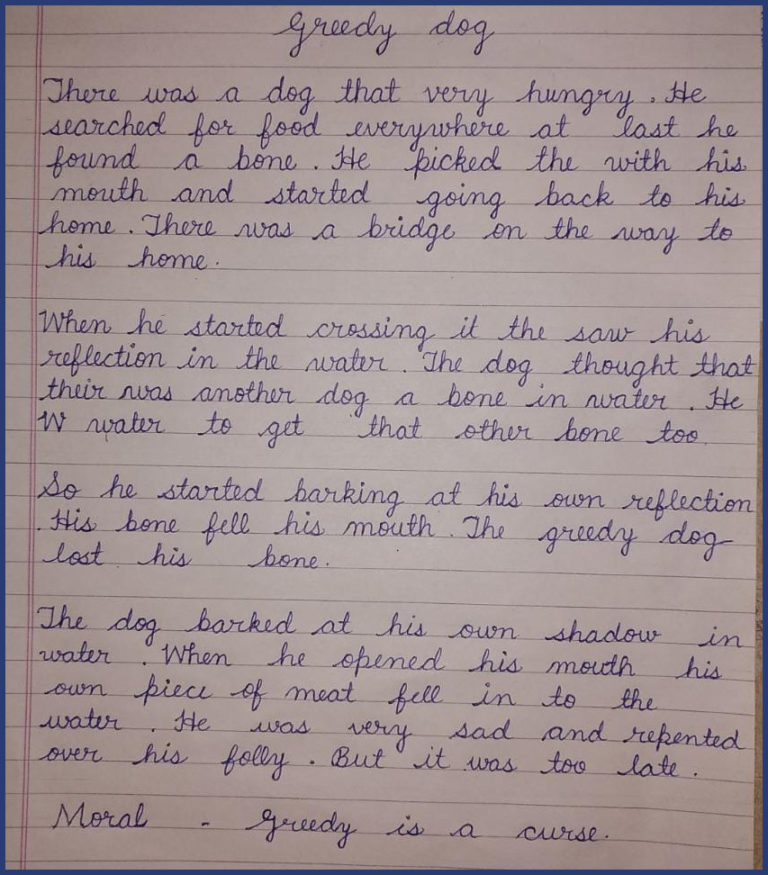 Greedy dog
There was a dog that very hungry. He
searched for food everywhere at last he
found a bone. He picked the with his
mouth and started going back to his
home. There was a bridge on the way to
his home.
When he started crossing it the saw his
reflection in the water. The dog thought that
their was another dog a bone in water. He
W water to get that other bone too.
So he started barking at his own reflection
. His bone fell his mouth. The greedy dog
lost his bone.
The dog barked at his own shadow in
water. When he opened his mouth his
own piece of meat fell in to the
water. He was very sad and repented
over his folly. But it was too late.
Moral - Greedy is a curse.